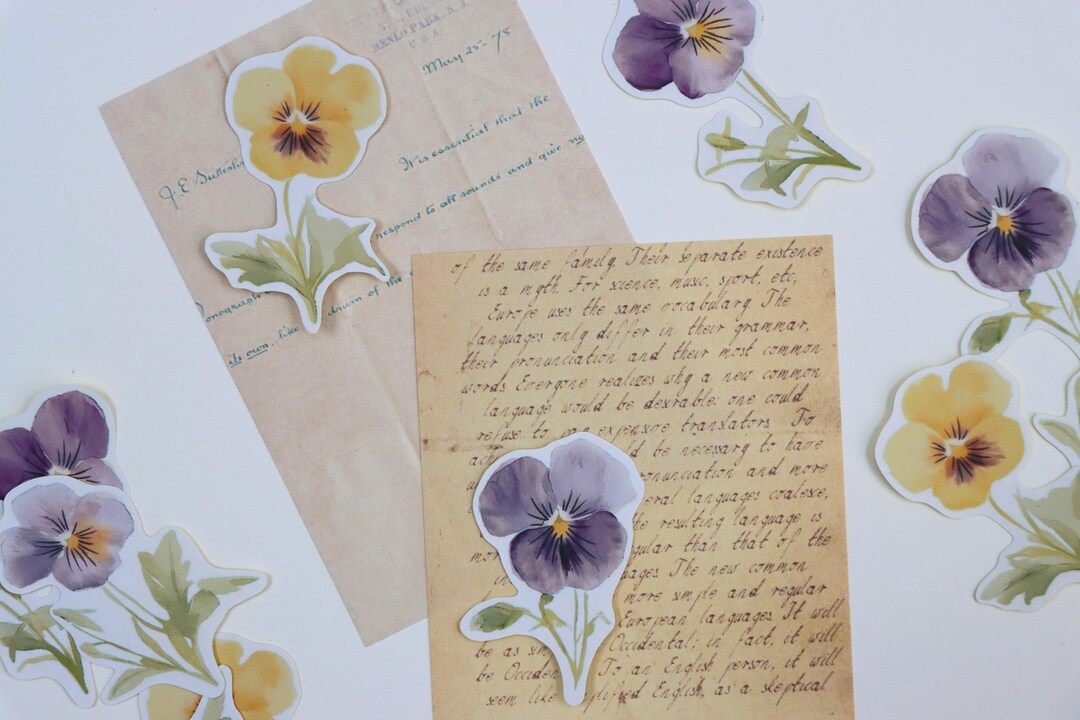 MENLO PARK, N.J.
U.S.A.
May 25-78
J.E. Sutterlin
It is essential that the
respond to all sounds and give no
onograph
drum of the
its own, like
of the same family. Their separate existence
is a myth. For science, music, sport, etc,
Europe uses the same vocabulary. The
languages only differ in their grammar,
their pronunciation and their most common
words. Everyone realizes why a new common
language would be desirable: one could
refuse to pay expensive translators. To
be necessary to have
pronunciation and more
languages coalesce,
the resulting language is
than that of the
The new common
more simple and regular
European languages. It will
be as Occidental; in fact, it will
be Occiden To an English person, it will
seem like English, as a skeptical